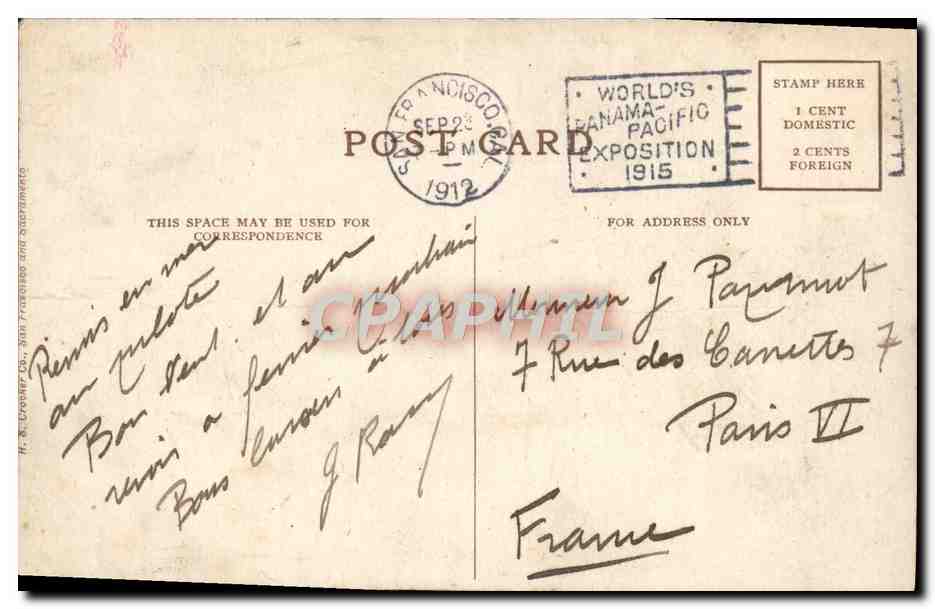 SAN FRANCISCO, CAL.
SEP 23
-PM
1912
WORLD'S
PANAMA-
PACIFIC
EXPOSITION
1915
STAMP HERE
1 CENT
DOMESTIC
2 CENTS
FOREIGN
POST CARD
THIS SPACE MAY BE USED FOR
CORRESPONDENCE
FOR ADDRESS ONLY
H. S. Crocker Co., San Francisco and Sacramento
Remis en mer
au pilote
Bon vent et au
revoir a fevrier prochain
Bons baisers à tous
J
Monsieur J
7 Rue des Canettes 7
Paris VI
France
CPAPHIL